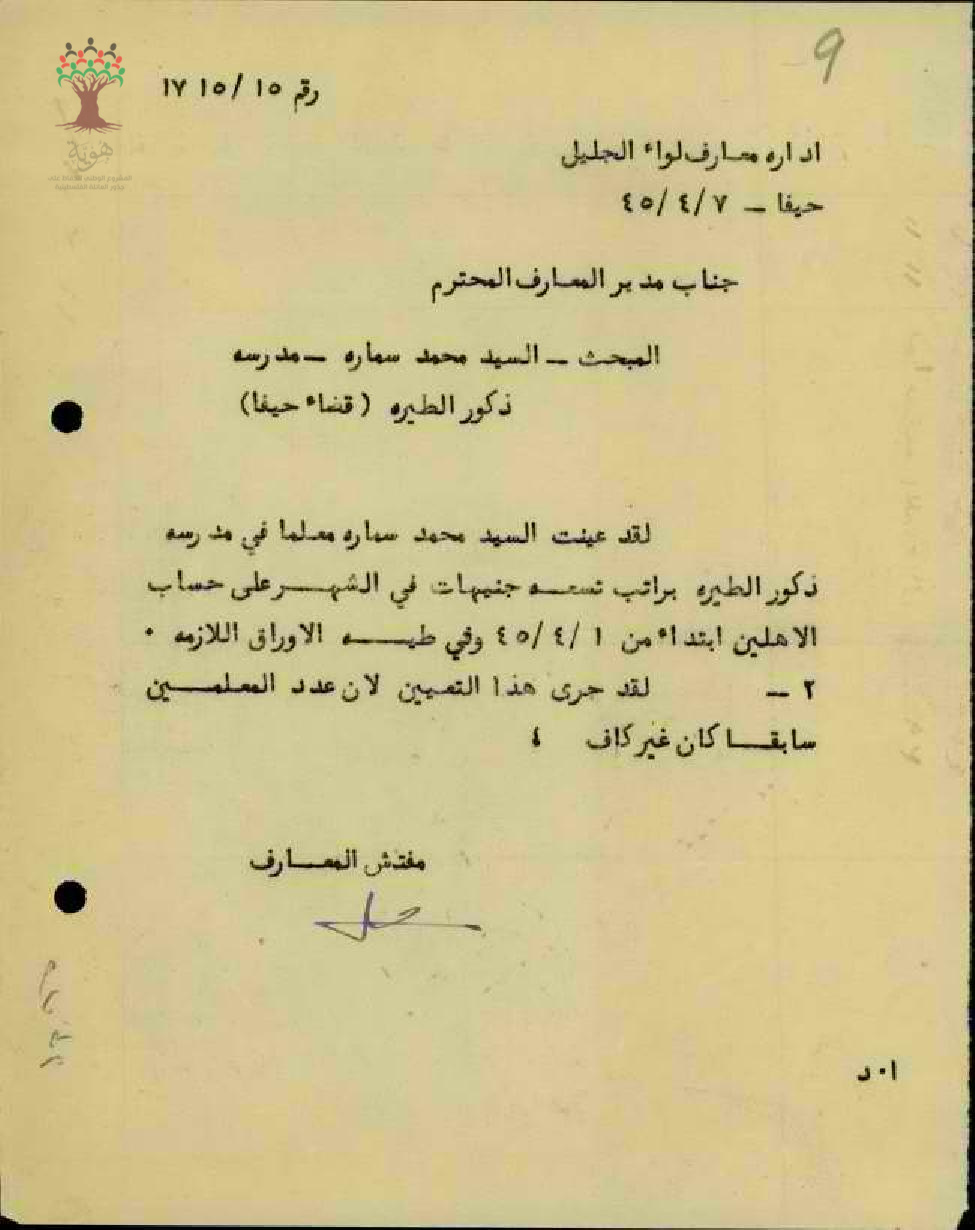 9
رقم ١٥/ ١٧١٥
هوية
اداره معارف لواء الجليل
حيفا – ٧ /٤ /٤٥
جناب مدير المعارف المحترم
المبحث – السيد محمد سماره – مدرسه
ذكور الطيره (قضاء حيفا)
لقد عينت السيد محمد سماره معلما في مدرسه
ذكور الطيره براتب تسعه جنيهات في الشهر على حساب
الاهلين ابتداء من ١ /٤ /٤٥ وفي طيه الاوراق اللازمه ٠
٢ – لقد جرى هذا التعيين لان عدد المعلمين
سابقا كان غير كاف ؛
مفتش المعارف
ا٠د